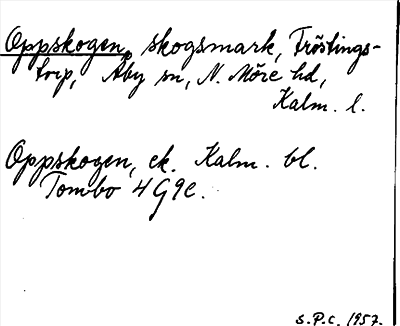 Oppskogen, skogsmark, Tröstings-
torp, Åby sn, N. Möre hd,
Kalm. l.
Oppskogen, ek. Kalm. bl.
Tombo 4G9e.
S.P.C. 1957.